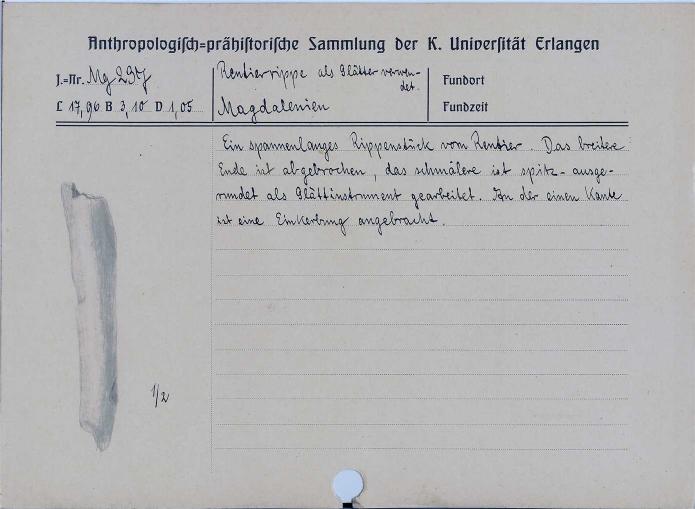 Anthropologiſch=prähiſtoriſche Sammlung der K. Univerſität Erlangen
J.=Nr. Mg 297
Rentierrippe als Glätter verwen-
det.
Fundort
L 17,96 B 3,10 D 1,05
Magdalenien
Fundzeit
Ein spannenlanges Rippenstück vom Rentier. Das breitere
Ende ist abgebrochen, das schmälere ist spitz-ausge-
rundet als Glättinstrument gearbeitet. An der einen Kante
ist eine Einkerbung angebracht.
1/2